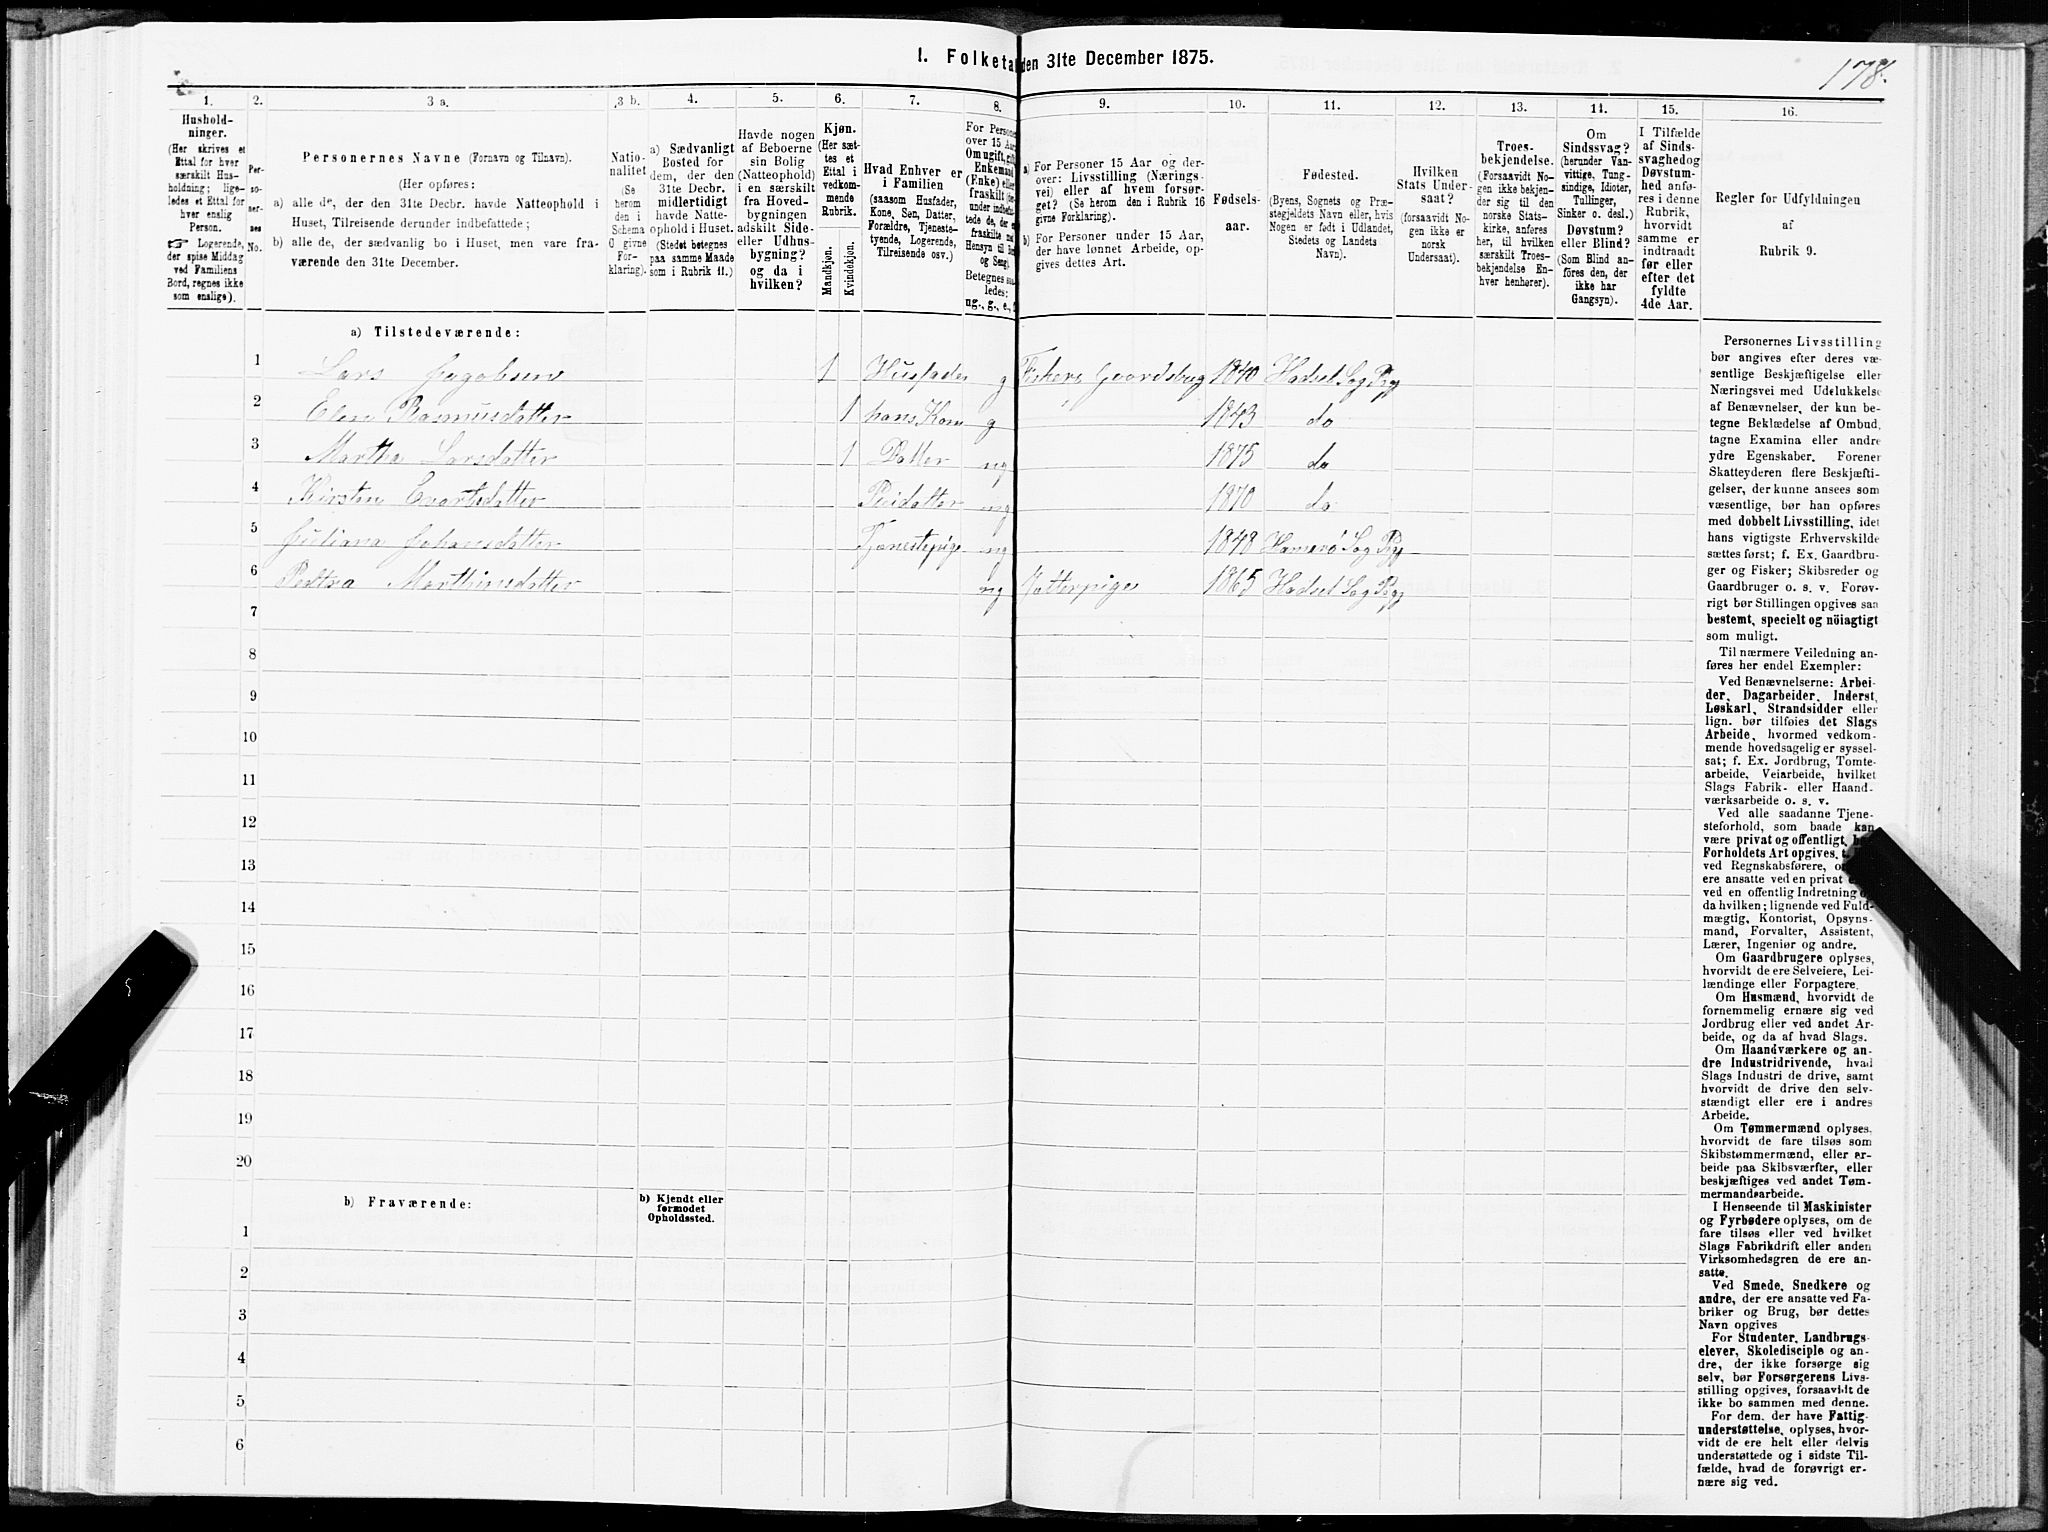 178.
I. Folketal den 31te December 1875.
1.
2.
3 a.
3 b.
4.
5.
6.
7.
8.
9.
10.
11.
12.
13.
14.
15.
16.
Husholdninger.
(Her skrives et
Ettal for hver
særskilt Husholdning; ligeledes et Ettal for
hver enslig
Person.
☞ Logerende,
der spise Middag
ved Familiens
Bord, regnes ikke
som enslige).
Personernes No.
Personernes Navne (Fornavn og Tilnavn).
(Her opføres:
a) alle de, der den 31te Decbr. havde Natteophold i
Huset, Tilreisende derunder indbefattede;
b) alle de, der sædvanlig bo i Huset, men vare fraværende den 31te December.
Nationalitet
(Se
herom
den i
Schema
O givne
Forklaring).
a) Sædvanligt
Bosted for
dem, der den
31te Decbr.
midlertidigt
havde Natteophold i Huset.
(Stedet betegnes
paa samme Maade
som i Rubrik 11.)
Havde nogen
af Beboerne
sin Bolig
(Natteophold)
i en særskilt
fra Hovedbygningen
adskilt Side-
eller Udhusbygning?
og da i
hvilken?
Kjøn.
(Her sættes et
Ettal i
vedkommende
Rubrik.
Mandkjøn.
Kvindekjøn.
Hvad Enhver er
i Familien
(saasom Husfader,
Kone, Søn, Datter,
Forældre, Tjenestetyende, Logerende,
Tilreisende osv.)
For Persone
over 15 Aar
Om ugift, gift
Enkemand
(Enke) eller
fraskilt
Betegnes saaledes:
ug., g., e.,
a) For Personer 15 Aar og derover: Livsstilling (Næringsvei) eller af hvem forsørget? (Se herom den i Rubrik 16
givne Forklaring).
b) For Personer under 15 Aar,
der have lønnet Arbeide, opgives dettes Art.
Fødselsaar.
Fødested.
(Byens, Sognets og Præstegjeldets Navn eller, hvis
Nogen er født i Udlandet,
Stedets og Landets
Navn).
Hvilken
Stats Undersaat?
(forsaavidt Nogen ikke er
norsk
Undersaat).
Troesbekjendelse.
(Forsaavidt Nogen ikke bekjender sig til den
norske Statskirke, anføres
her, til hvilken
særskilt Troesbekjendelse Enhver henhører).
Om
Sindssvag?
(herunder Vanvittige, Tungsindige, Idioter,
Tullinger,
Sinker o. desl.)
Døvstum?
eller Blind?
(Som Blind anføres den, der
ikke har
Gangsyn).
I Tilfælde
af Sindssvaghed og
Døvstumhed anføres i denne
Rubrik,
hvorvidt
samme er
indtraadt
før eller
efter det
fyldte
4de Aar.
Regler for Udfyldningen
af
Rubrik 9.
a) Tilstedeværende:
1 Lars Jagobsen 1 Husfader g Fisker, Gaardsbrug 1840 Hadsel Sog Prgj
2 Elen Rasmusdatter 1 hans Kone g 1843 do
3 Martha Larsdatter 1 Datter ug 1875 do
4 Kirsten Evartsdatter Pleidatter ug 1870 do
5 Juliana Johansdatter Tjenestepige ug 1848 Hamerö Sog Prgj
6 Pedtra Marthinusdatter ug 1865 Hadsel Sog Prgj
7
8
9
10
11
12
13
14
15
16
17
18
19
20
b) Fraværende:
b) Kjendt eller
formodet
Opholdssted.
1
2
3
4
5
6
Personernes Livsstilling
bør angives efter deres væsentlige Beskjæftigelse eller
Næringsvei med Udelukkelse
af Benævnelser, der kun betegne Beklædelse af Ombud,
tagne Examina eller andre
ydre Egenskaber. Forener
Skatteyderen flere Beskjæftigelser, der kunne ansees som
væsentlige, bør han opføres
med dobbelt Livsstilling, idet
hans vigtigste Erhvervskilde
sættes først; f. Ex. Gaardbruger og Fisker; Skibsreder og
Gaardbruger o. s. v. Forøvrigt bør Stillingen opgives saa
bestemt, specielt og nöiagtigt
som muligt.
Til nærmere Veiledning anføres her endel Exempler:
Ved Benævnelserne: Arbeider, Dagarbeider, Inderst,
Løskarl, Strandsidder eller
lign. bør tilføies det Slags
Arbeide, hvormed vedkommende hovedsagelig er sysselsat; f. Ex. Jordbrug, Tomtearbeide, Veiarbeide, hvilket
Slags Fabrik- eller Haandværksarbeide o. s. v.
Ved alle saadanne Tjenesteforhold, som baade kan
være privat og offentligt, bør
Forholdets Art opgives,
ved Regnskabsførere,
ere ansatte ved en privat
ved en offentlig Indretning
da hvilken; lignende ved Fuldmægtig, Kontorist, Opsynsmand, Forvalter, Assistent,
Lærer, Ingeniør og andre.
Om Gaardbrugere oplyses,
hvorvidt de ere Selveiere, Leilændinge eller Forpagtere.
Om Husmænd, hvorvidt de
fornemmelig ernære sig ved
Jordbrug eller ved andet Arbeide, og da af hvad Slags.
Om Haandværkere og andre Industridrivende, hvad
Slags Industri de drive, samt
hvorvidt de drive den selvstændigt eller ere i andres
Arbeide.
Om Tømmermænd oplyses,
hvorvidt de fare tilsøs som
Skibstømmermænd, eller arbeide paa Skibsværfter, eller
beskjæftiges ved andet Tømmermandsarbeide.
I Henseende til Maskinister
og Fyrbødere oplyses, om de
fare tilsøs eller ved hvilket
Slags Fabrikdrift eller anden
Virksomhedsgren de ere ansatte.
Ved Smede, Snedkere og
andre, der ere ansatte ved Fabriker og Brug, bør dettes
Navn opgives
For Studenter, Landbrugselever, Skoledisciple og andre, der ikke forsørge sig
selv, bør Forsørgerens Livsstilling opgives, forsaavidt de
ikke bo sammen med denne.
For dem, der have Fattigunderstøttelse, oplyses, hvorvidt de ere helt eller delvis
understøttede og i sidste Tilfælde, hvad de forøvrigt ernære sig ved.